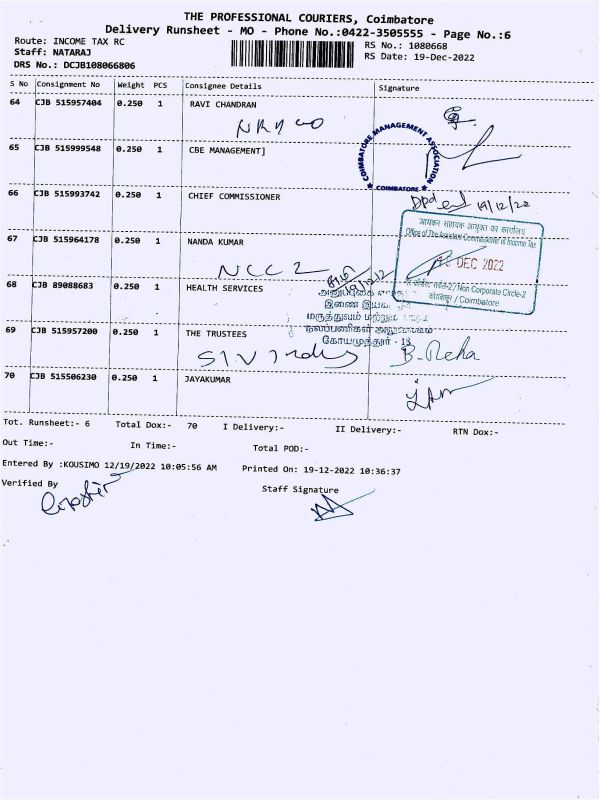 THE PROFESSIONAL COURIERS, Coimbatore
Delivery Runsheet - MO - Phone No.:0422-3505555 - Page No.:6
Route: INCOME TAX RC
RS No.: 1080668
Staff: NATARAJ
RS Date: 19-Dec-2022
DRS No.: DCJB108066806
S No Consignment No Weight PCS Consignee Details Signature
64 CJB 515957404 0.250 1 RAVI CHANDRAN
65 CJB 515999548 0.250 1 CBE MANAGEMENT]
COIMBATORE MANAGEMENT ASSOCIATION
* COIMBATORE *
66 CJB 515993742 0.250 1 CHIEF COMMISSIONER
19/12/22
आयकर सहायक आयुक्त का कार्यालय
Office of The Assistant Commissioner of Income Tax
67 CJB 515964178 0.250 1 NANDA KUMAR
DEC 2022
NCC 2
Non Corporate Circle-2
कोयम्बतूर / Coimbatore
68 CJB 89088683 0.250 1 HEALTH SERVICES
இணை
மருத்துவம் மற்றும்
நலப்பணிகள் அலுவலகம்
கோயமுத்தூர் - 18
69 CJB 515957200 0.250 1 THE TRUSTEES
B. Neha
70 CJB 515506230 0.250 1 JAYAKUMAR
Tot. Runsheet:- 6 Total Dox:- 70 I Delivery:- II Delivery:- RTN Dox:-
Out Time:- In Time:- Total POD:-
Entered By :KOUSIMO 12/19/2022 10:05:56 AM Printed On: 19-12-2022 10:36:37
Verified By
Staff Signature